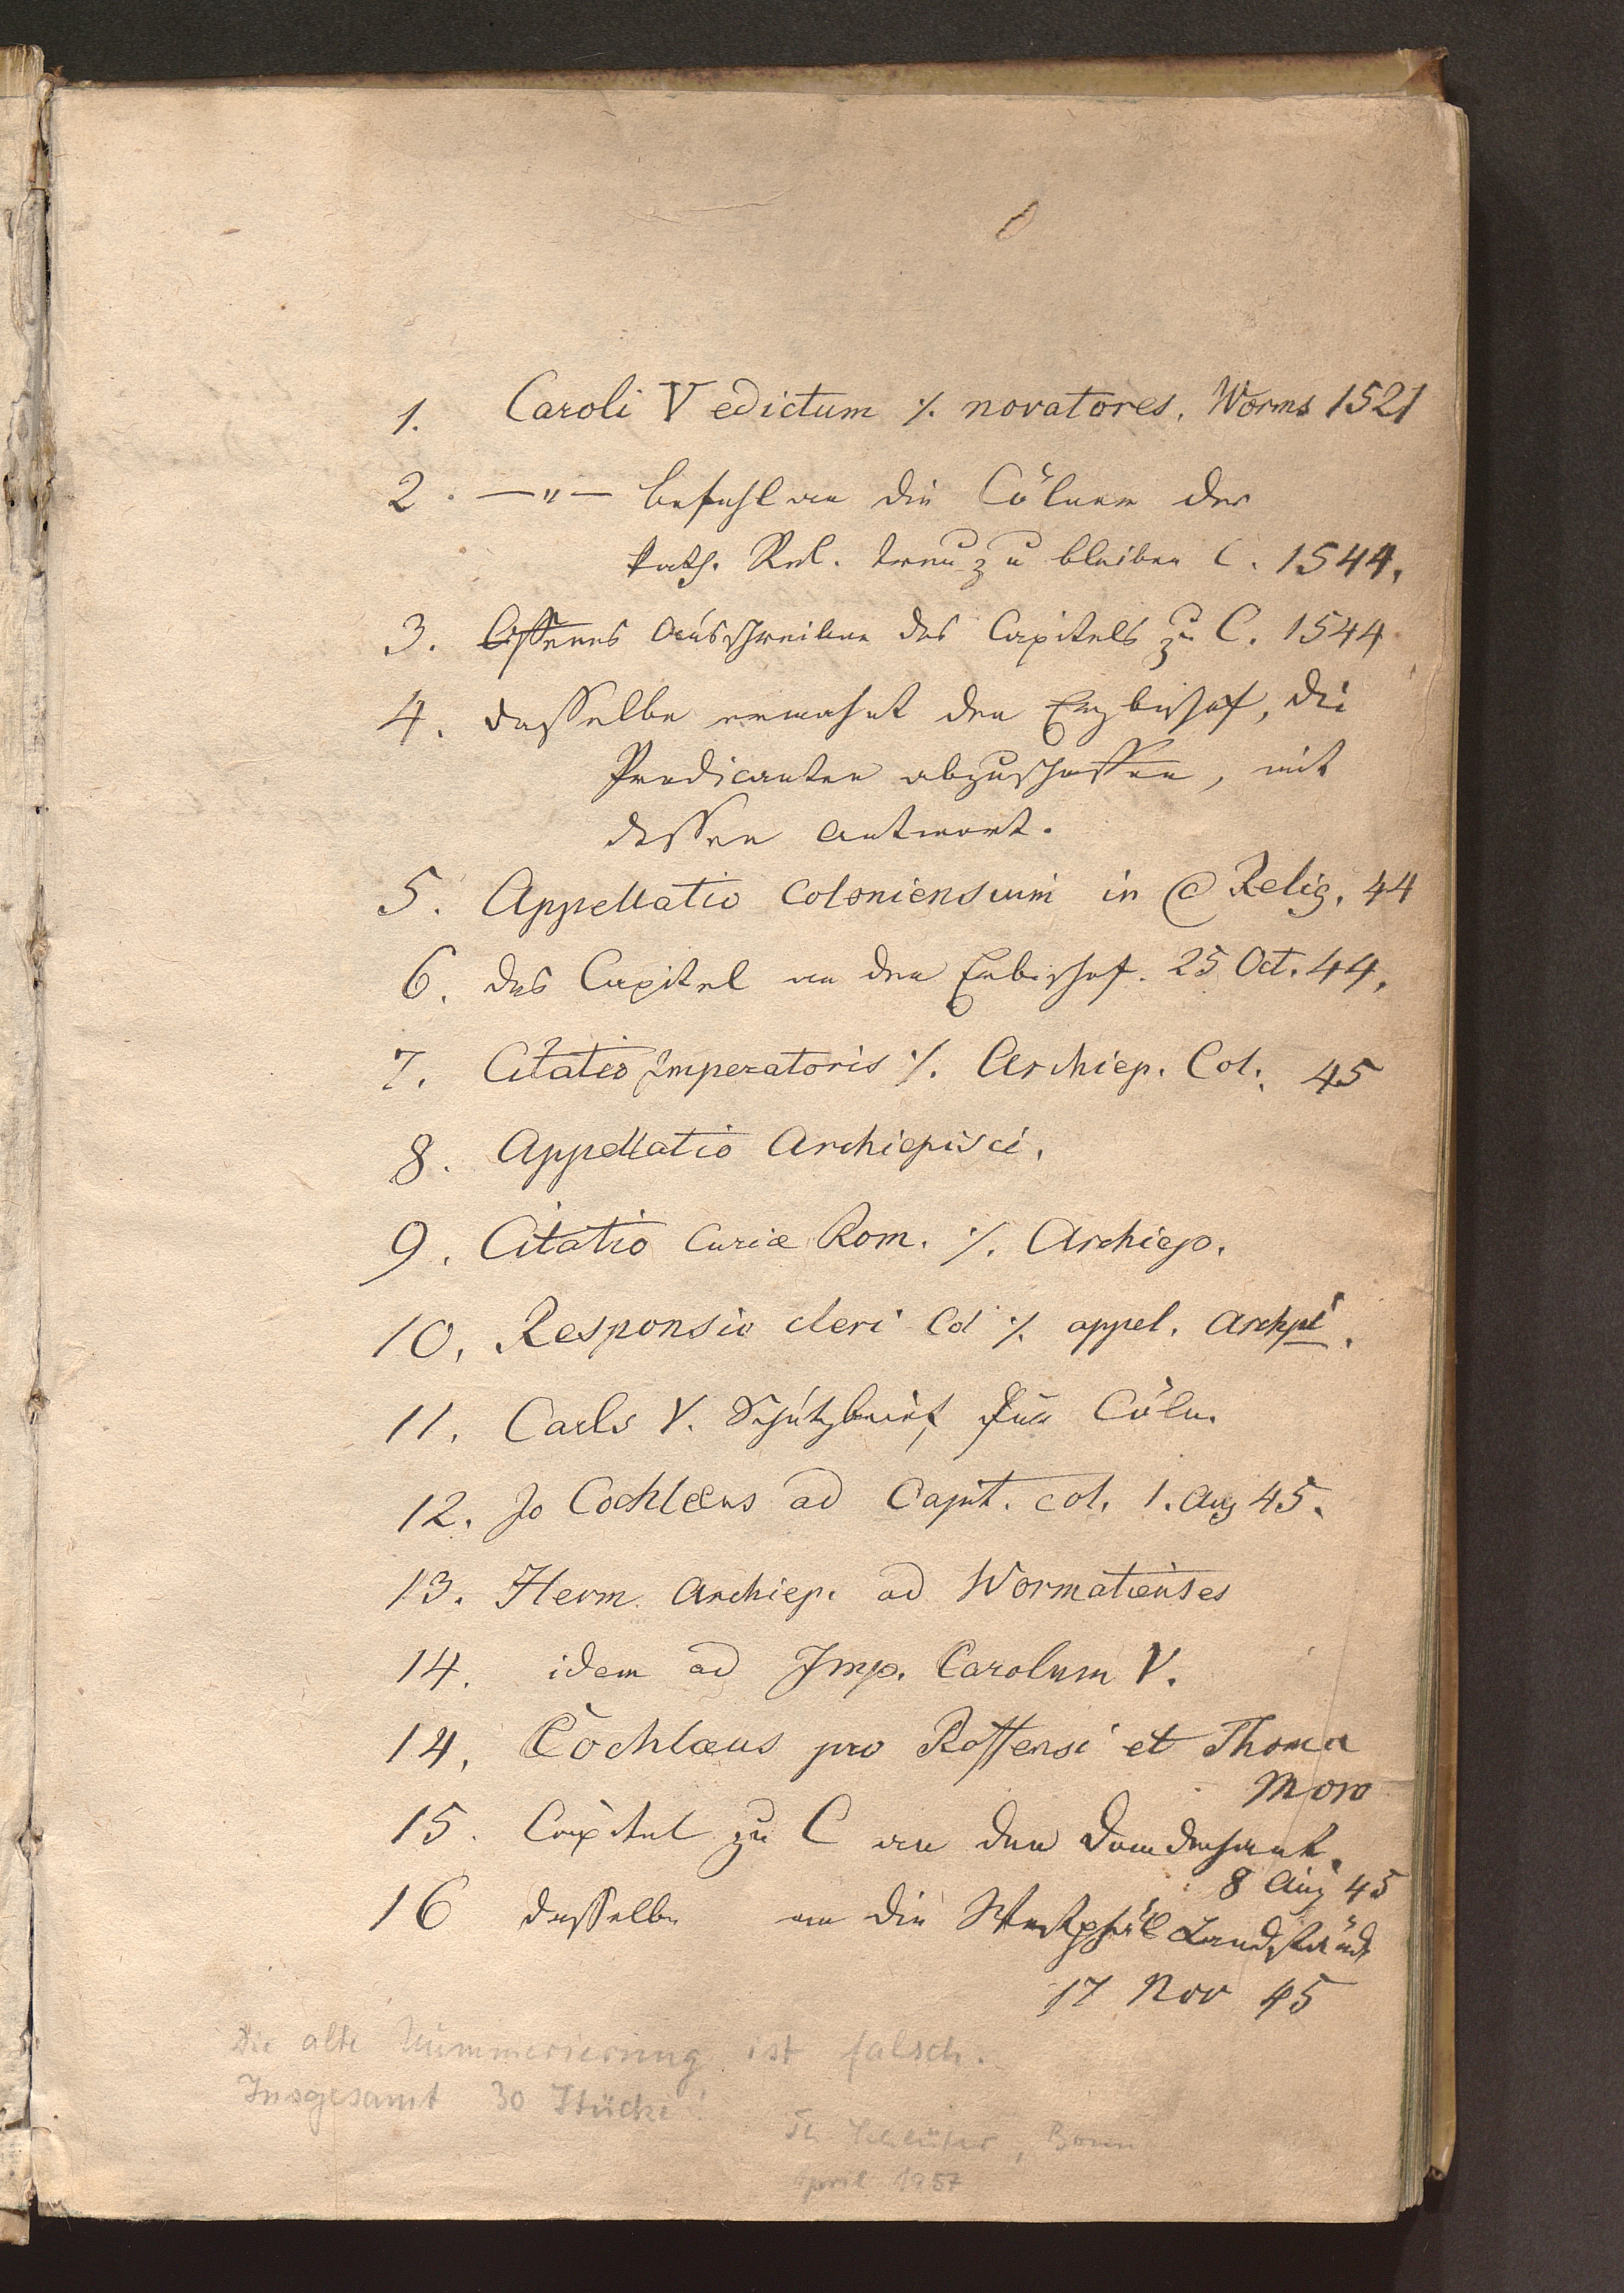 1. Caroli V edictum ⁒ novatores. Worms 1521
2. —"— befehl an die Cölner der
kath. Rel. treu zu bleiben C. 1544.
3. Offenes Ausschreiben des Capitels zu C. 1544
4. dasselbe ermahnt den Erzbischof, die
Predicanten abzuschaffen, mit
dessen Antwort.
5. Appellatio Coloniensium in C Relig. 44
6. das Capitel an den Erbischof. 25 Oct. 44.
7. Citatio Imperatoris ⁒ Archiep. Col. 45
8. Appellatio Archiepisci.
9. Citatio Curiæ Rom. ⁒ Archiep.
10. Responsio cleri Col ⁒ appel. Archpi.
11. Carls V. Schutzbrief für Cöln.
12. Jo Cochlæus ad Capit. col. 1. Aug 45.
13. Herm. Archiep. ad Wormatienses
14. idem ad Imp. Carolum V.
14. Cochlæus pro Roffensi et Thoma
Moro
15. Capitel zu C an den Domdechant.
8 Aug 45
16 dasselbe an die Westphäl Landstände
17 Nov 45
Die alte Nummerierung ist falsch.
Insgesamt 30 Stücke!
Schlüter, Bonn
April 1957